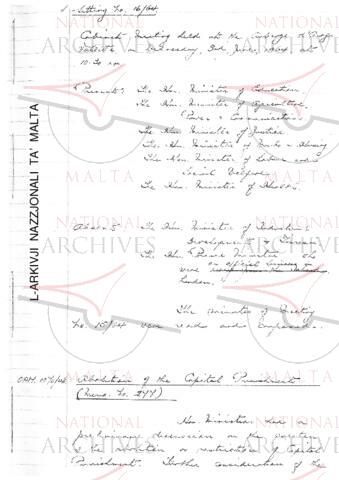 Sitting No. 16/64
Cabinet Meeting held at the Auberge
Valletta on Wednesday, 3rd June, 1964, at
10.30 am
Present: The Hon. Minister of Education,
The Hon. Minister of Agriculture,
Power & Communications
The Hon. Minister of Justice
The Hon. Minister of Works & Housing
The Hon. Minister of Labour and
Social Welfare
The Hon. Minister of Health.
Absent: The Hon. Minister of Industrial
Development & Tourism
The Hon. Prime Minister who
were on official business in
London.
The minutes of Meeting
No. 15/64 were read and confirmed.
OPM. Abolition of the Capital Punishment
(Memo. No. 277)
Hon. Ministers had a
preliminary discussion on the question
of the abolition or restriction of Capital
Punishment. Further consideration of the
L-ARKIVJI NAZZJONALI TA' MALTA
NATIONAL
ARCHIVES
MALTA